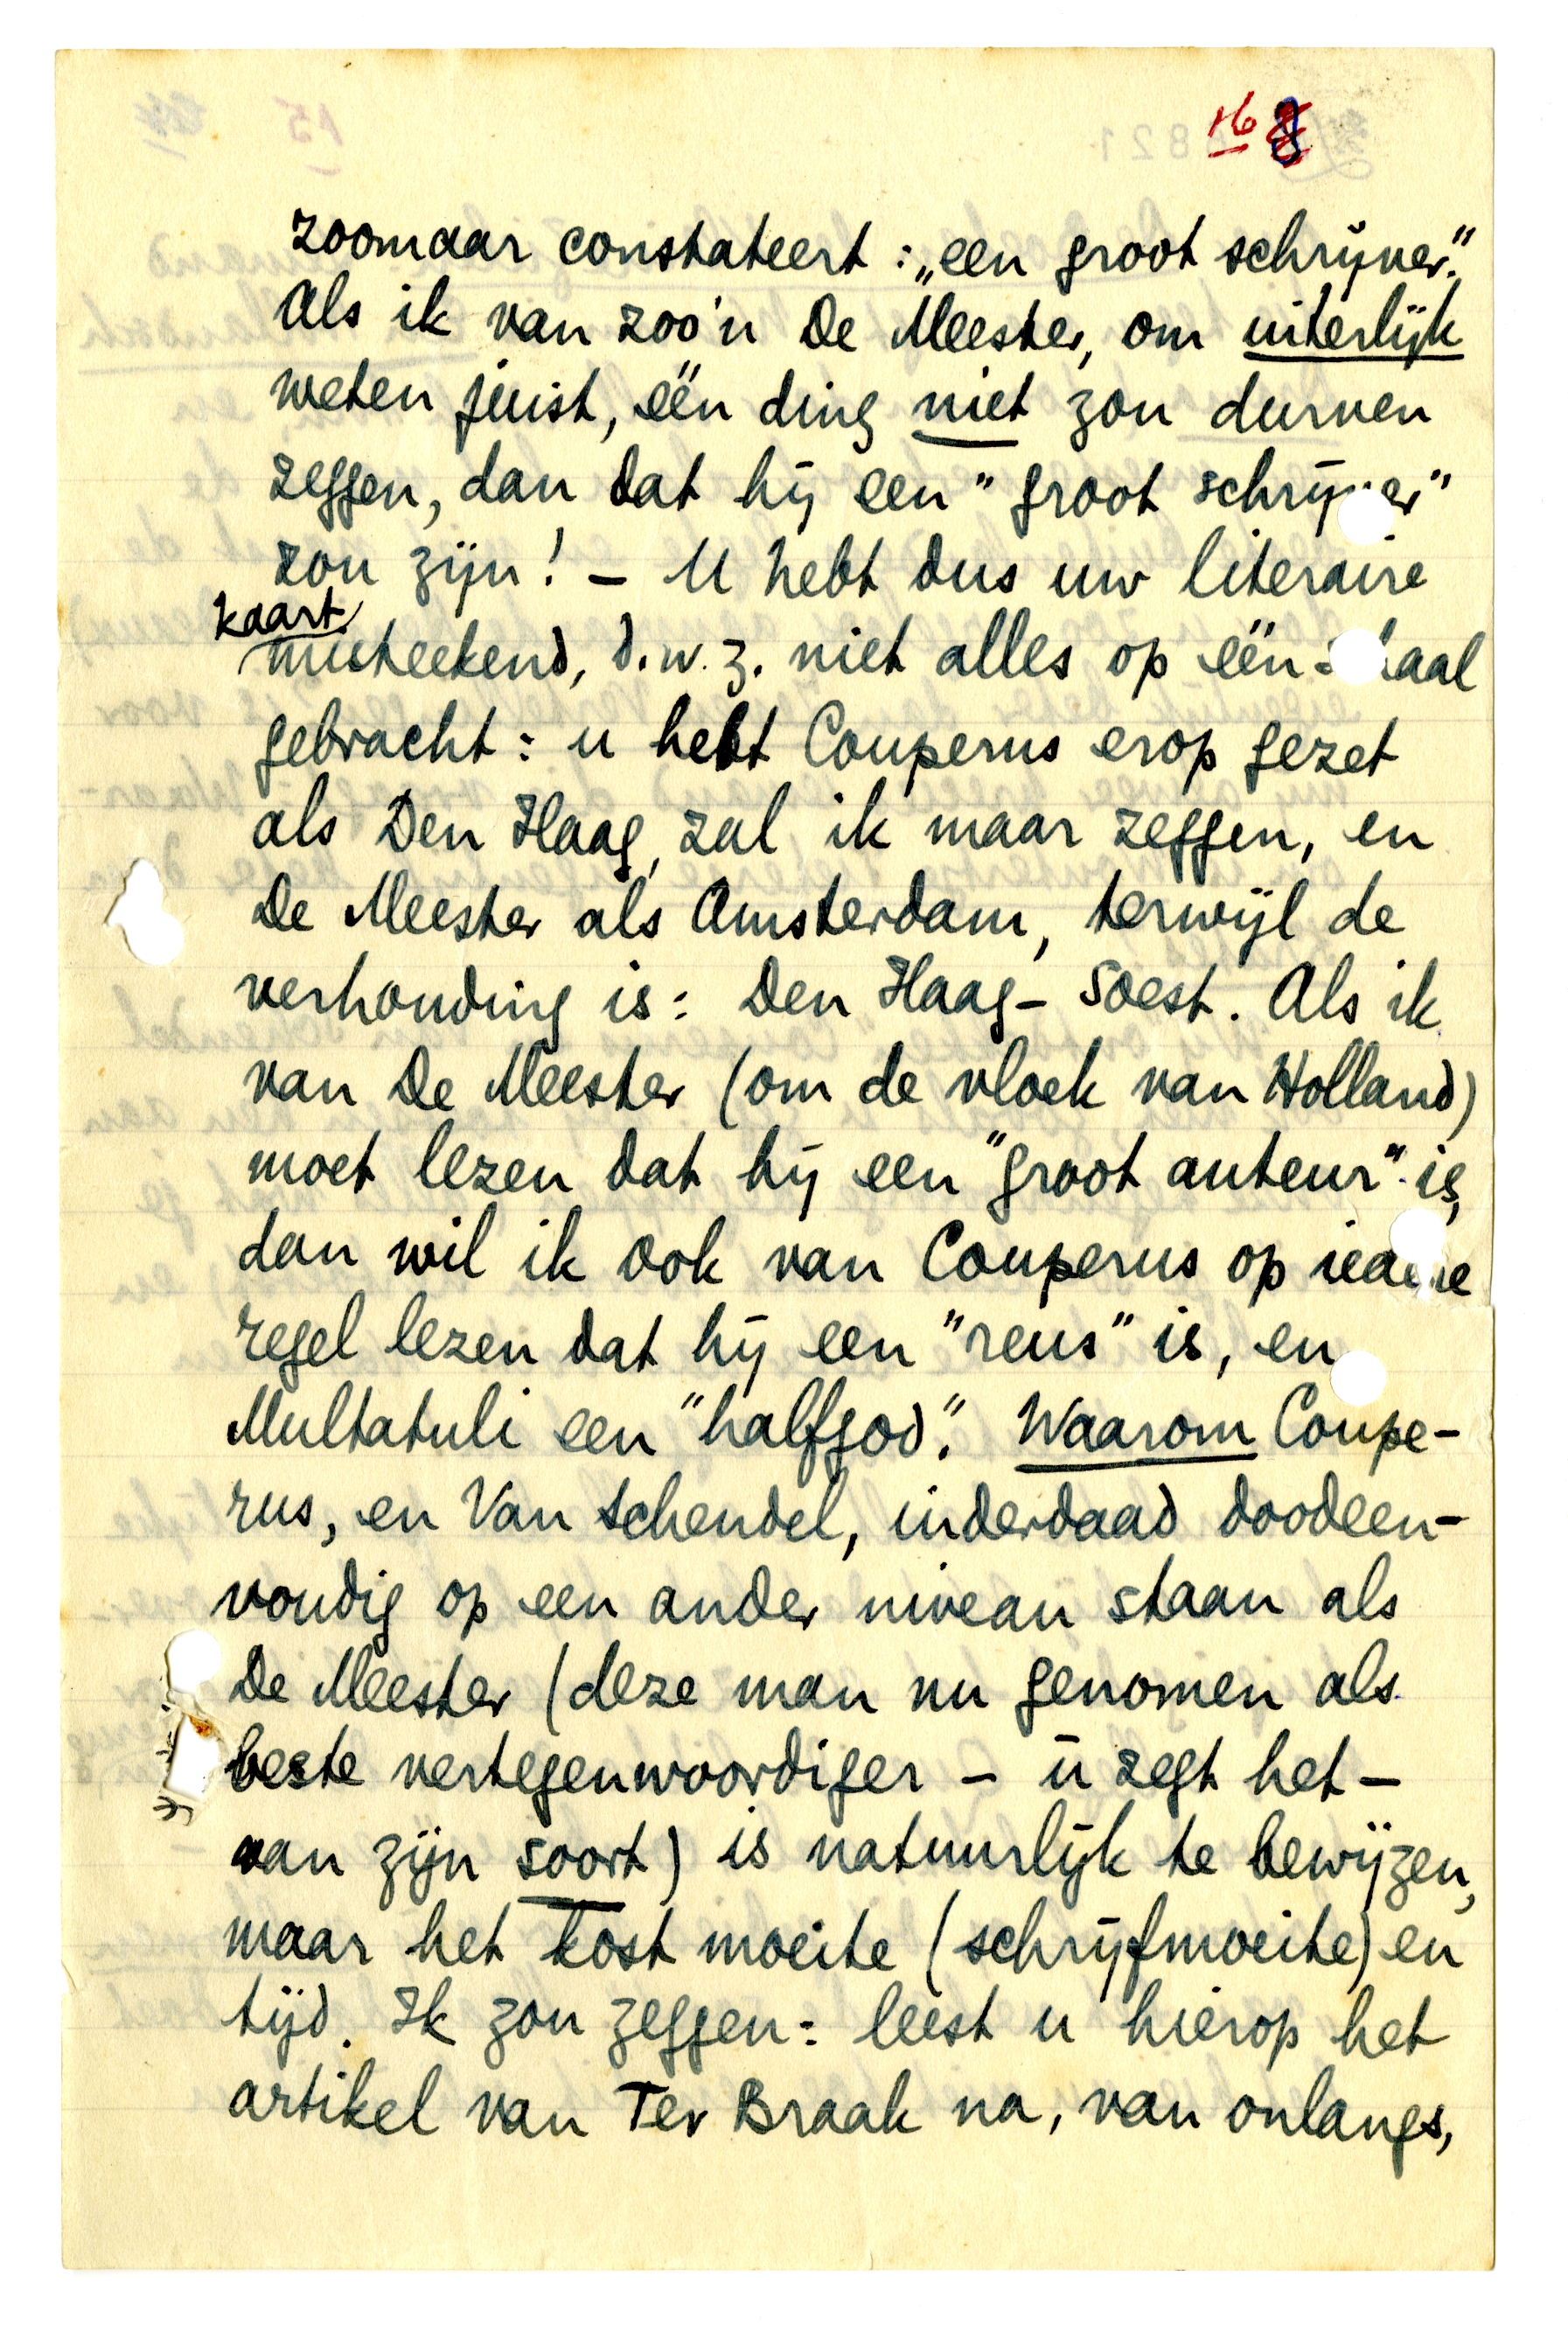 16 8
zoomaar constateert: „een groot schrijver."
Als ik van zoo'n De Meester, om uiterlijk
weten juist, één ding niet zou durven
zeggen, dan dat hij een "groot schrij er"
zou zijn! – U hebt dus uw literaire
kaart
misteekend, d.w.z. niet alles op één s aal
gebracht: u hebt Couperus erop gezet
als Den Haag, zal ik maar zeggen, en
De Meester als Amsterdam, terwijl de
verhouding is: Den Haag – Soest. Als ik
van De Meester (om de vloek van Holland)
moet lezen dat hij een "groot auteur" is,
dan wil ik ook van Couperus op iedere
regel lezen dat hij een "reus" is, en
Multatuli een "halfgod". Waarom Coupe-
rus, en Van Schendel, inderdaad doodeen-
voudig op een ander niveau staan als
De Meester (deze man nu genomen als
beste vertegenwoordiger – ú zegt het –
van zijn soort) is natuurlijk te bewijzen,
maar het kost moeite (schrijfmoeite) en
tijd. Ik zou zeggen: leest u hierop het
artikel van Ter Braak na, van onlangs,